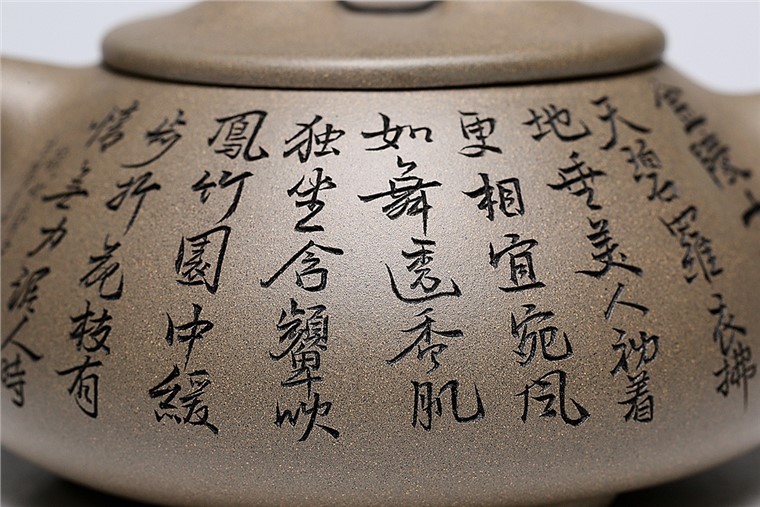 天碧羅衣拂
地垂美人初着
更相宜宛风
如舞透香肌
独坐含顰吹
鳳竹園中緩
步折花枝有
情無力泥人時